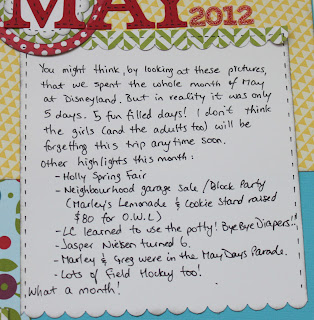 MAY
2012
You might think, by looking at these pictures,
that we spent the whole month of May
at Disneyland. But in reality it was only
5 days. 5 fun filled days! I don't think
the girls (and the adults too) will be
forgetting this trip anytime soon.
Other highlights this month:
- Holly Spring Fair
- Neighbourhood garage sale / Block Party
(Marley's Lemonade & Cookie Stand raised
$80 for O.W.L)
- LC learned to use the potty! Bye Bye Diapers!!
- Jasper Nielsen turned 6.
- Marley & Greg were in the May Days Parade.
- Lots of Field Hockey too!
What a month!